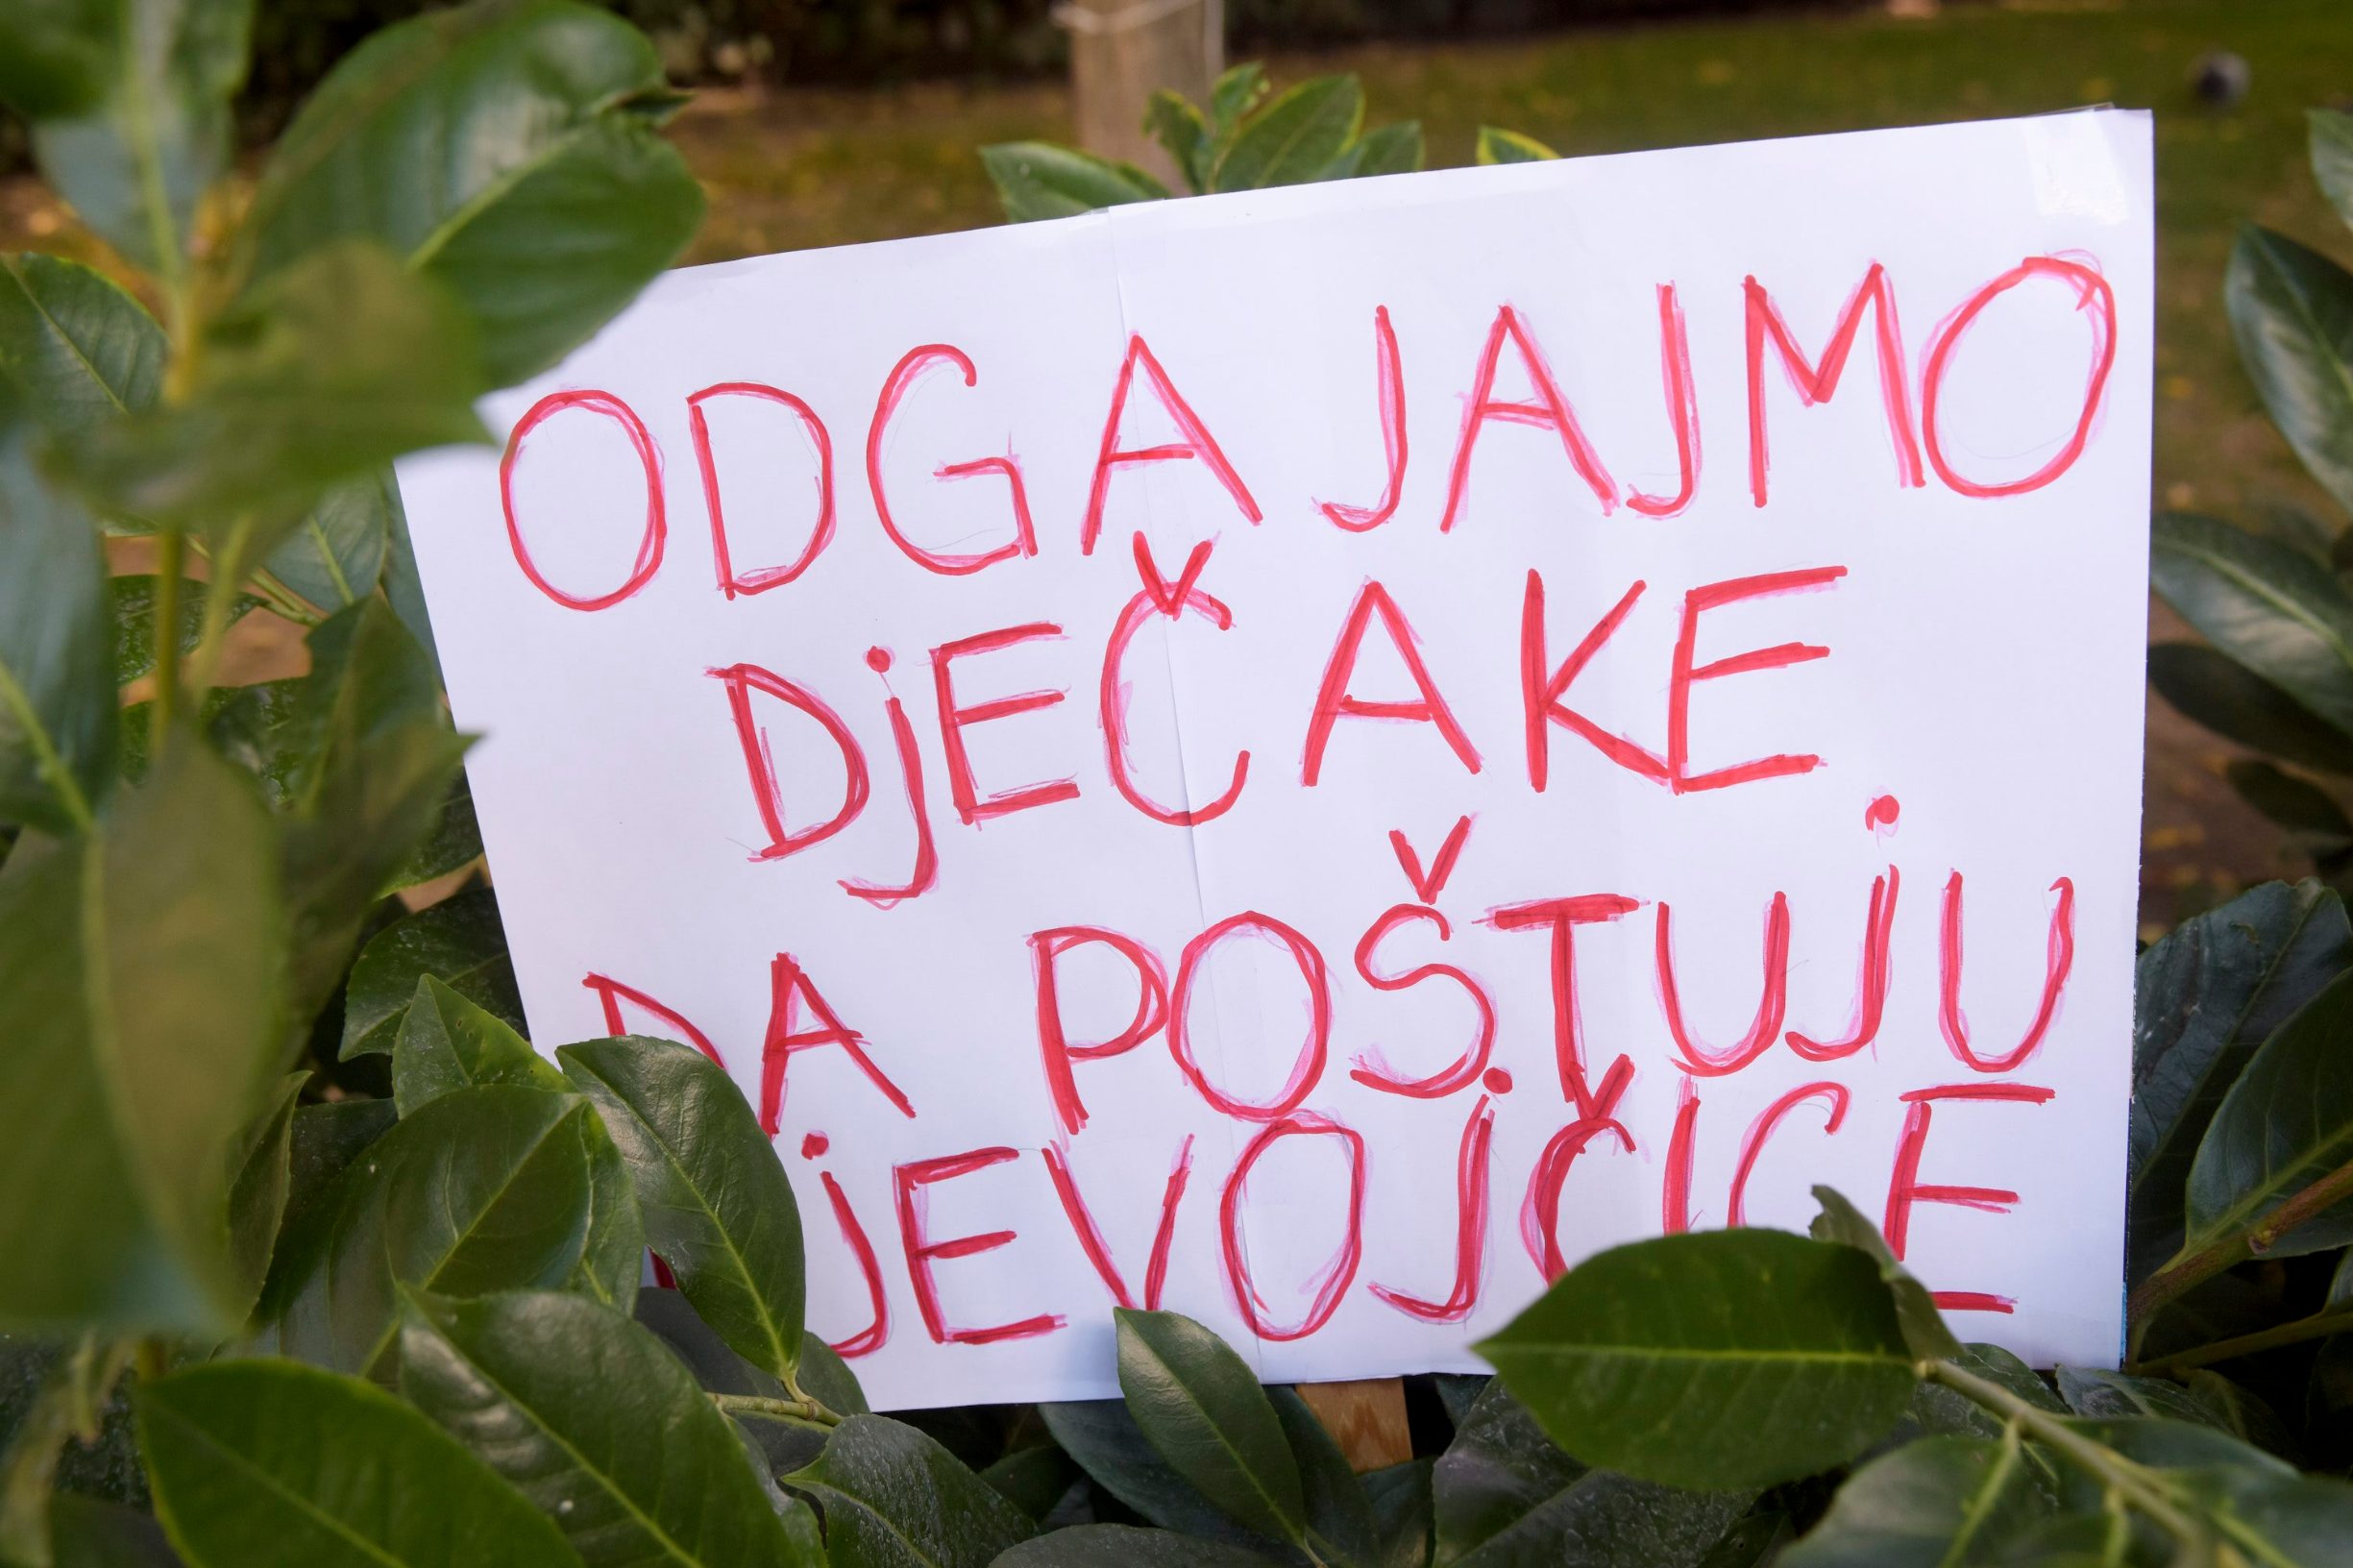 ODGAJAJMO
DjEČAKE
DA POŠTUjU
DjEVOjČICE